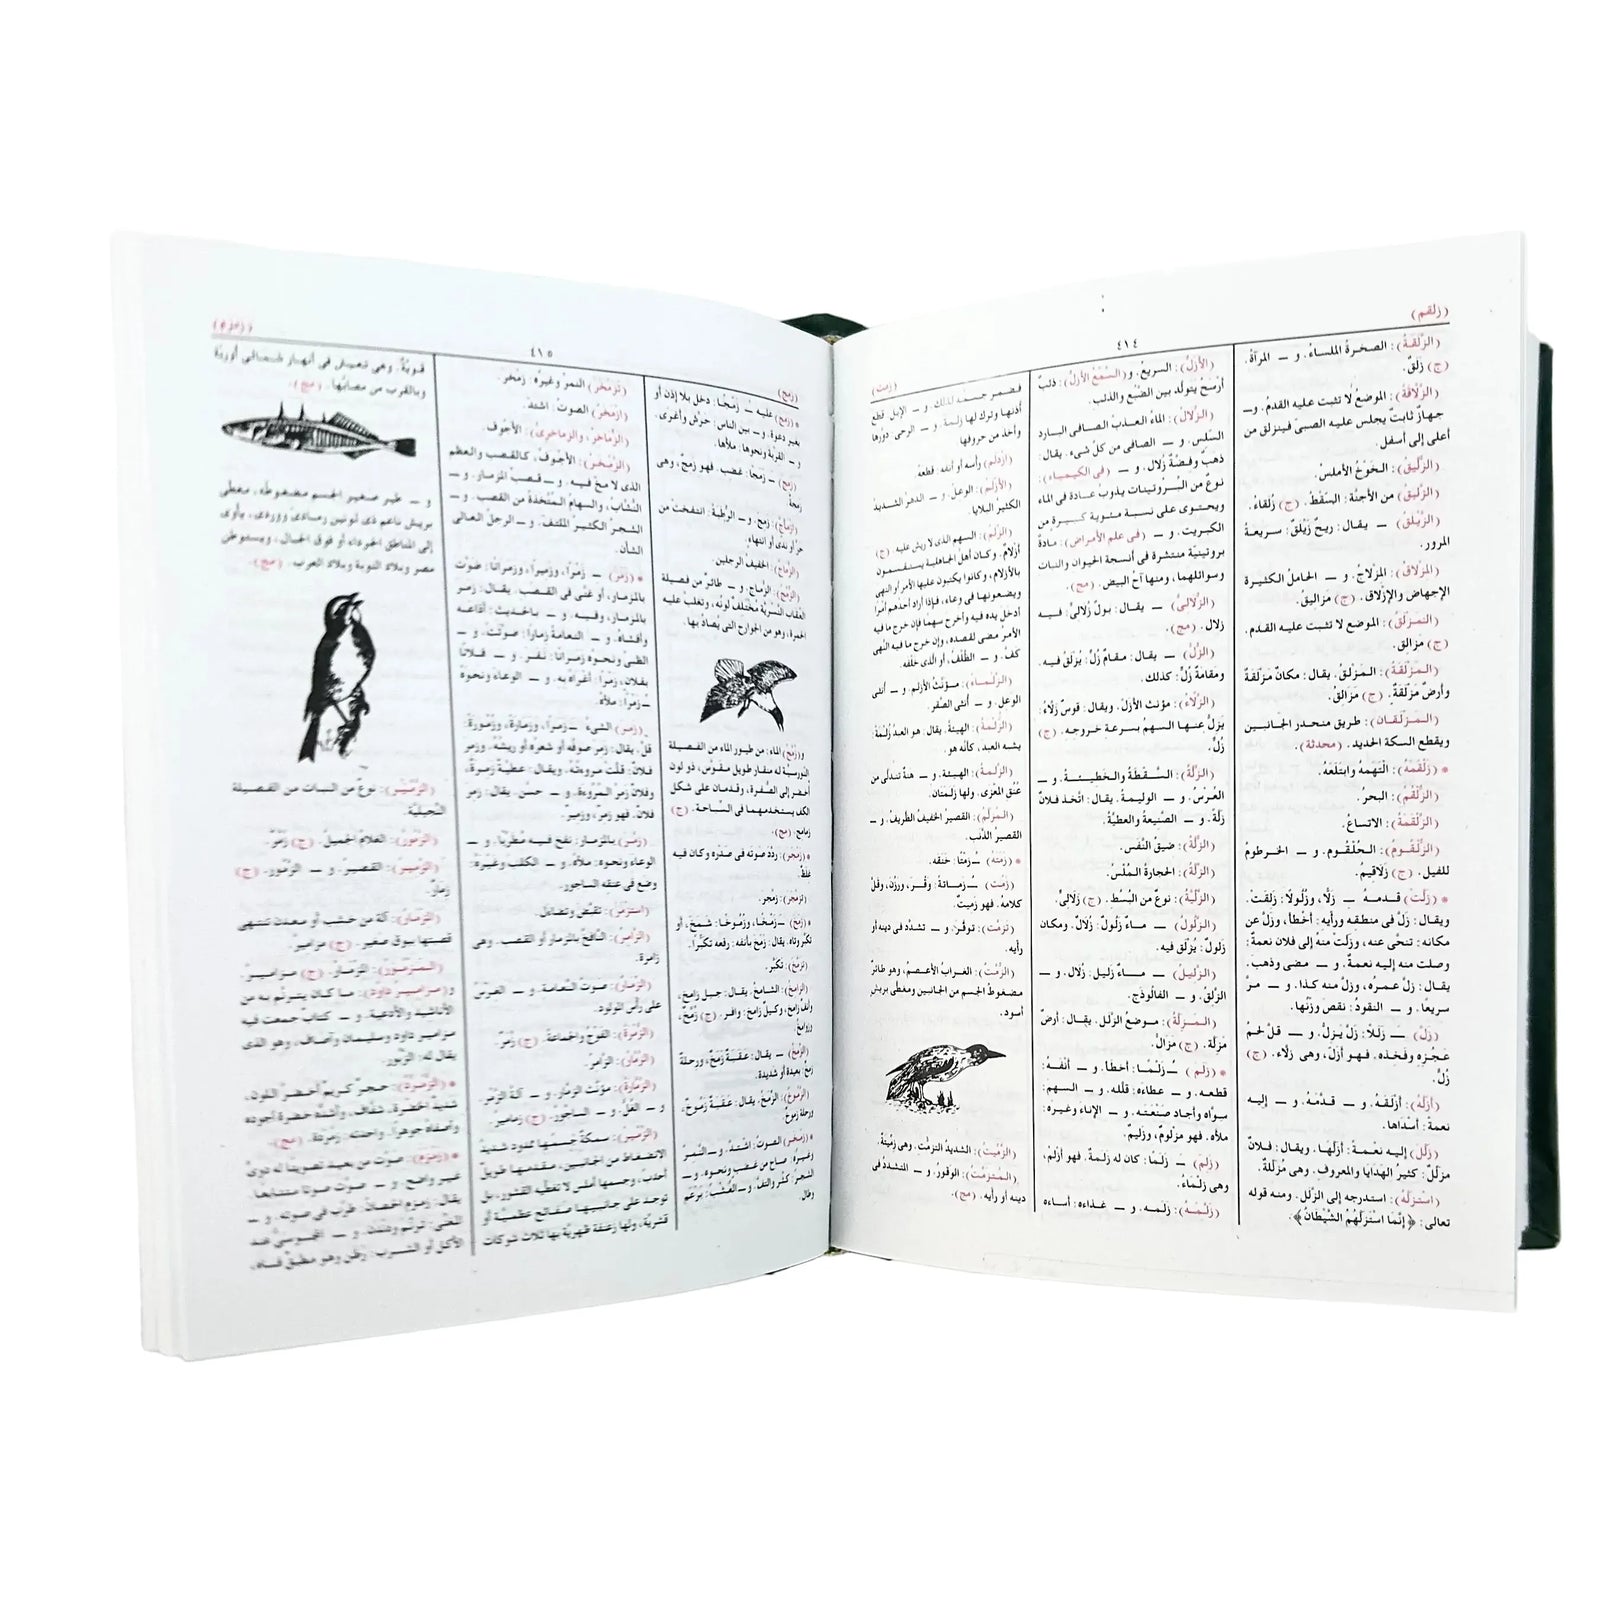 (زلقم)
٤١٤
(زمت)
(الزَّلَقَةُ): الصخرةُ الملساءُ. و — المرآةُ.
(ج) زَلَقٌ.
(الزَّلاَّقةُ): الموضعُ لا تثبت عليه القدمُ. و—
جهازٌ ثابتٌ يجلس عليه الصبىّ فينزلق من
أعلى إلى أسفل.
(الزُّلَّيْقُ): الخَوْخُ الأملسُ.
(الزَّلِيقُ) من الأجنَّة: السِّقْطُ. (ج) زُلَقاءُ.
(الزَّيْلَقُ) — يقال: ريحٌ زَيْلَقٌ: سريعةُ
المرور.
(المِزْلاقُ): المِزْلاجُ. و — الحاملُ الكثيرة
الإجهاض والإزْلاق. (ج) مَزاليقُ.
(المَزْلَقُ): الموضع لا تثبت عليه القدم.
(ج) مَزالق.
(المَزْلَقَةُ): المَزْلقُ. يقال: مكانٌ مَزْلقةٌ
وأرضٌ مَزْلقةٌ. (ج) مَزَالِقُ.
(المَزْلَقَان): طريق منحدر الجانبين
ويقطع السكة الحديد. (محدثة).
* (زَلْقَمَهُ): الْتَهَمَهُ وابتَلَعَهُ.
(الزُّلْقُمُ): البحرُ.
(الزَّلْقَمَةُ): الاتساعُ.
(الزُّلْقُومُ): الحُلْقُوم. و — الخرطومُ
للفيل. (ج) زَلاقيمُ.
* (زَلَّتْ) قدمهُ — زَلّا، وزُلُولًا: زَلَقتْ.
ويقال: زَلَّ فى منطقه ورأيه: أخْطأ، وزلَّ عن
مكانه: تنحّى عنه، وزلَّتْ منهُ إلى فلان نعمةٌ:
وصلت منه إليه نعمةٌ. و — مضى وذهبَ.
يقال: زلَّ عمره، وزلَّ منه كذا. و — مرَّ
سريعًا. و — النقودُ: نقصَ وزْنُها.
(زَلَّ) — زَلَلًا: زلَّ يَزلُّ. و — قلَّ لحمُ
عَجُزِه وفَخِذه. فهو أزلّ، وهى زلَّاء. (ج)
زُلٌّ.
(أزلَّهُ): أزلَقهُ. و — قدَّمهُ. و — إليه
نعمةً: أسْداها.
(زَلَّل) إليه نعْمةً: أزلّها. ويقال: فلانٌ
مزلِّلٌ: كثيرُ الهدايا والمعروفِ. وهى مُزلِّلةٌ.
(اسْتزلَّهُ): استدرجه إلى الزَّلل. ومنه قوله
تعالى: ﴿إنَّمَا اسْتَزَلَّهُمُ الشَّيْطَانُ﴾.
(الأزَلُّ): السريعُ. و (السِّمْعُ الأزَلُّ): ذئبٌ
أرْسَحُ يتولّد بين الضَّبُع والذئب.
(الزُّلالُ): الماءُ العذبُ الصافى البارد
السَّلِس. و — الصافى من كلّ شىء. يقال:
ذهبٌ وفضَّةٌ زُلال. و — (فى الكيمياء):
نوعٌ من البُروتينات يذوب عادة فى الماء
ويحتوى على نسبة مئوية كبيرة من
الكبريت. و — (فى علم الأمراض): مادةٌ
بروتينيَّة منتشرة فى أنسجة الحيوان والنبات
وسوائلهما، ومنها آحُ البيض. (مج).
(الزُّلالىُّ) — يقال: بولٌ زُلالىٌّ: فيه
زلال. (مج).
(الزُّلُّ) — يقال: مقامٌ زُلٌّ: يُزْلَقُ فيه.
ومقامَةٌ زُلٌّ: كذلك.
(الزَّلاَّءُ): مؤنث الأزلّ. ويقال: قوسٌ زلَّاءُ:
يَزلُّ عنها السهمُ بسرعة خروجه. (ج)
زُلٌّ.
(الزَّلَّةُ): السَّقْطَةُ والخَطِيئةُ. و —
العُرْسُ. و — الوليمةُ. يقال: اتَّخذ فلانٌ
زَلَّة. و — الصنيعةُ والعطيَّةُ.
(الزُّلَّةُ): ضيقُ النَّفَس.
(الزِّلَّةُ): الحجارةُ المُلْسُ.
(الزِّلِّيَّةُ): نوعٌ من البُسُط. (ج) زَلالىُّ.
(الزَّلُولُ) — ماءٌ زَلُولٌ: زُلالٌ. ومكان
زلولٌ: يُزْلَق فيه.
(الزَّلِيلُ) — ماءٌ زَليل: زُلال. و —
الزَّلقُ. و — الفالُوذَج.
(المَزَلَّةُ): موضعُ الزَّلل. يقال: أرضٌ
مَزلَّة. (ج) مَزالُّ.
* (زلم) — زَلْمًا: أخطأ. و — أنْفَهُ:
قطعه. و — عطاءَه: قلَّله. و — السهمَ:
سوّاه وأجاد صَنْعَته. و — الإناء وغيره:
ملأه. فهو مزلُومٌ، وزَليمٌ.
(زَلِمَ) — زَلَمًا: كان له زلَمةٌ. فهو أزلَم،
وهى زلْماءُ.
(زَلَّمَهُ): زلَمه. و — غذاءه: أساءه
فصغر جسمه لذلك. و — الإبل: قطع
أذنها وترك لها زلَمة. و — الرحى: دوّرها
وأخذ من حروفها.
(ازْدَلَم) رأسه أو أنفه: قطعهُ.
(الأزْلَم): الوعلُ. و — الدهرُ الشديد
الكثيرُ البلايا.
(الزَّلَم): السهم الذى لا ريش عليه. (ج)
أزْلامٌ. وكان أهلُ الجاهلية يستقسمون
بالأزلام، وكانوا يكتبون عليها الأمر أو النهى
ويضعونها فى وعاء، فإذا أراد أحدهم أمرًا
أدخل يده فيه وأخرج سهما فإن خرج ما فيه
الأمرُ مضى لقصده، وإن خرج ما فيه النَّهى
كفَّ. و — الظِّلْفُ، أو الذى خلفَه.
(الزَّلْماءُ): مؤنَّث الأزلم. و — أنثى
الوعل. و — أنثى الصَّقر.
(الزَّلْمَةُ): الهيئةُ. يقال: هو العبدُ زُلْمةً:
يشبه العبد، كأنه هو.
(الزَّلَمةُ): الهيئةُ. و — هَنَةٌ تتدلَّى من
عُنق المعْزَى. ولها زلَمتان.
(المُزلَّمُ): القصيرُ الخفيفُ الظريفُ. و —
القصير الذنَب.
* (زمَتهُ) — زَمْتًا: خنقه.
(زَمُت) — زَماتةً: وَقُرَ، ورَزُن، وقلَّ
كلامهُ. فهو زَميتٌ.
(تزمَّت): توقَّر. و — تشدَّد فى دينه أو
رأيه.
(الزُّمَّتُ): الغرابُ الأعصمُ، وهو طائرٌ
مضغوطُ الجسم من الجانبين ومغطى بريش
أسود.
(الزِّمِّيتُ): الشديدُ التزمُّت. وهى زِمِّيتةٌ.
(المُتزمِّتُ): الوقورُ. و — المتشددُ فى
دينه أو رأيه. (مج).
(زمج)
٤١٥
(زمزم)
* (زمج) عليه — زَمْجًا: دخل بلا إذن أو
بغير دعوة. و — بين الناس: حرَّش وأغرى.
و — القربةَ ونحوها: ملأها.
(زمِج) — زَمَجًا: غضب. فهو زَمِجٌ، وهى
زَمِجةٌ
(ازْمَأجَّ): زمِج. و — الرُّطَبةُ: انتفخت من
حرّ أو ندًى أو انتهاءٍ.
(الزَّماجُ): الخفيفُ الرجلين.
(الزُّمَّجُ): الزُّماج. و — طائرٌ من فصيلة
العقاب النسْريَّة مختلفٌ لونُه، وتغلبُ عليه
الحمرة، وهو من الجوارح التى يُصادُ بها.
و (زُمَّجُ الماء): من طيور الماء من الفصيلة
النورسية له منقار طويل مقوس، ذو لون
أخضر إلى الصُّفرة، وقدمان على شكل
الكف يستخدمهما فى السِّباحة. (ج)
زمامج. (مج).
* (زمجر): ردَّد صوته فى صدره وكان فيه
غِلظٌ.
(تزمْجَر): زمْجر.
* (زمخ) — زَمْخًا، وزُمُوخًا: شمَخَ، أو
تكبَّر وتاه. يقال: زمَخ بأنفه: رفعه تكبُّرًا.
(تزمَّخ): تكبَّر.
(الزامخُ): الشامخُ. يقال: جبل زامخٌ،
وأنفٌ زامخٌ، وكيلٌ زامخٌ: وافر. (ج) زُمَّخٌ،
وزوامخُ
(الزَّمَخُ) — يقال: عَقَبَةٌ زَمَخٌ، ورحلةٌ
زمَخٌ: بعيدة أو شديدة.
(الزَّمُوخُ): الزَّمخُ. يقال: عَقَبَةٌ زَموخٌ،
ورحلة زموخٌ.
* (زمخر) الصوتُ: اشتدَّ. و — النَّمرُ
وغيرهُ: صاح من غضبٍ ونحوه. و —
الشجرُ: كثُر والتفّ. و — العُشْبُ: بَرْعَم
وطال
(تزمخرَ) النمرُ وغيرُه: زمْخرَ.
(ازمَخَرَّ) الصوتُ: اشتدّ.
(الزُّماخرُ، والزماخرِىُّ): الأجْوَف.
(الزَّمْخرُ): الأجوف، كالقصب والعظم
الذى لا مخ فيه. و — قصبُ المزمار. و —
النُّشَّابُ، والسهامُ المتَّخذةُ من القصب. و —
الشجرُ الكثيرُ الملتفُّ. و — الرجلُ العالى
الشأن.
* (زَمَر) — زَمْرًا، وزَميرًا، وزمرانًا: صَوّت
بالمزمار، أو غنّى فى القصب. يقال: زمر
بالمزمار، وفيه. و — بالحديث: أذاعه
وأفشاه. و — النعامةُ زمارًا: صوّتتْ. و —
الظبىُ ونحوه زمرانًا: نفَر. و — فلانًا
بفلان، زمْرًا: أغراه به. و — الوعاءَ ونحوه
زَمْرًا: ملأه.
(زمِرَ) الشىءُ — زَمَرًا، وزَمارة، وزُمُورة:
قلَّ. يقال: زمِر صوفُه أو شعره أو ريشُه. وزمِر
فلانٌ: قلَّت مروءتُه. ويقال: عطيَّة زمِرة،
وفلانٌ زَمِرُ المُروءة. و — حسُن. يقال: زمِر
فلانٌ. فهو زمِر، وزَميرٌ.
(زمَّر) بالمزمار: نفخ فيه مُطربًا. و —
الوعاء ونحوه: ملأه. و — الكلبَ وغيرَه:
وضع فى عنقه الساجور.
(استزمَرَ): تقبَّض وتضاءل.
(الزامِرُ): النافخُ بالمزمار أو القصب. وهى
زامرة.
(الزِّمارُ): صوتُ النعامة. و — العرْسُ
على رأس المولود.
(الزُّمْرَةُ): الفَوْجُ والجماعةُ. (ج) زُمَرٌ.
(الزَّمّارُ): الزامرُ.
(الزَّمّارةُ): مؤنَّث الزمار. و — آلةُ الزَّمْر.
و — الغُلُّ. و — الساجورُ. (ج) زماميرُ.
(الزِّمِّيرُ): سمكةٌ جسمها عمود شديدُ
الانضغاط من الجانبين. مقدمها طويلٌ
أحدب، وجسمها أملس لا تغطِّيه القشور، بل
توجد على جانبيها صفائح عظمية أو
قشرية، ولها زعنفة ظهرية بها ثلاث شوكات
قويَّةٌ. وهى تعيش فى أنهار شمالى أوربة
وبالقرب من مصابّها. (مج).
و — طير صغير الجسم مضغوطه، مغطَّى
بريش ناعم ذى لونين رمادى ووردى. يأوى
إلى المناطق الجرداء أو فوق الجبال. ويستوطن
مصر وبلاد النوبة وبلاد العرب. (مج).
نوعٌ من النبات من الفصيلة
النجيليَّة.
(الزَّمُورُ): الغلامُ الجميل. (ج) زُمُرٌ.
(الزَّمِيرُ): القصيرُ. و — الزَّمُّور. (ج)
زِمارٌ.
(المِزمارُ): آلة من خشب أو معدن تنتهى
قصبتها ببوق صغير. (ج) مزاميرُ.
(المَزْمُورُ): المِزمارُ. (ج) مزاميرُ.
و (مزاميرُ داود): ما كان يترنّم به من
الأناشيد والأدعية. و — كتابٌ جمعت فيه
مزامير داود وسليمان وآصاف، وهو الذى
يقال له: الزبور.
* (الزُّمُرُّدُ): حجرٌ كريم أخضرُ اللون،
شديدُ الخضرة، شفّاف، وأشدُّه خضرة أجوده
وأصفاه جوهرًا. واحدته: زمردة. (مج).
* (زمزم): صوّت من بعيد تصويتًا له دوىٌّ
غير واضح. و — صوَّت صوتًا متتابعًا.
يقال: زمزم الحصانُ: طرَّب فى صوته. و —
المغنِّى: ترنَّم ودندن. و — المجوسىُّ عند
الأكل أو الشرب: رَطن وهو مطبقٌ فاه،